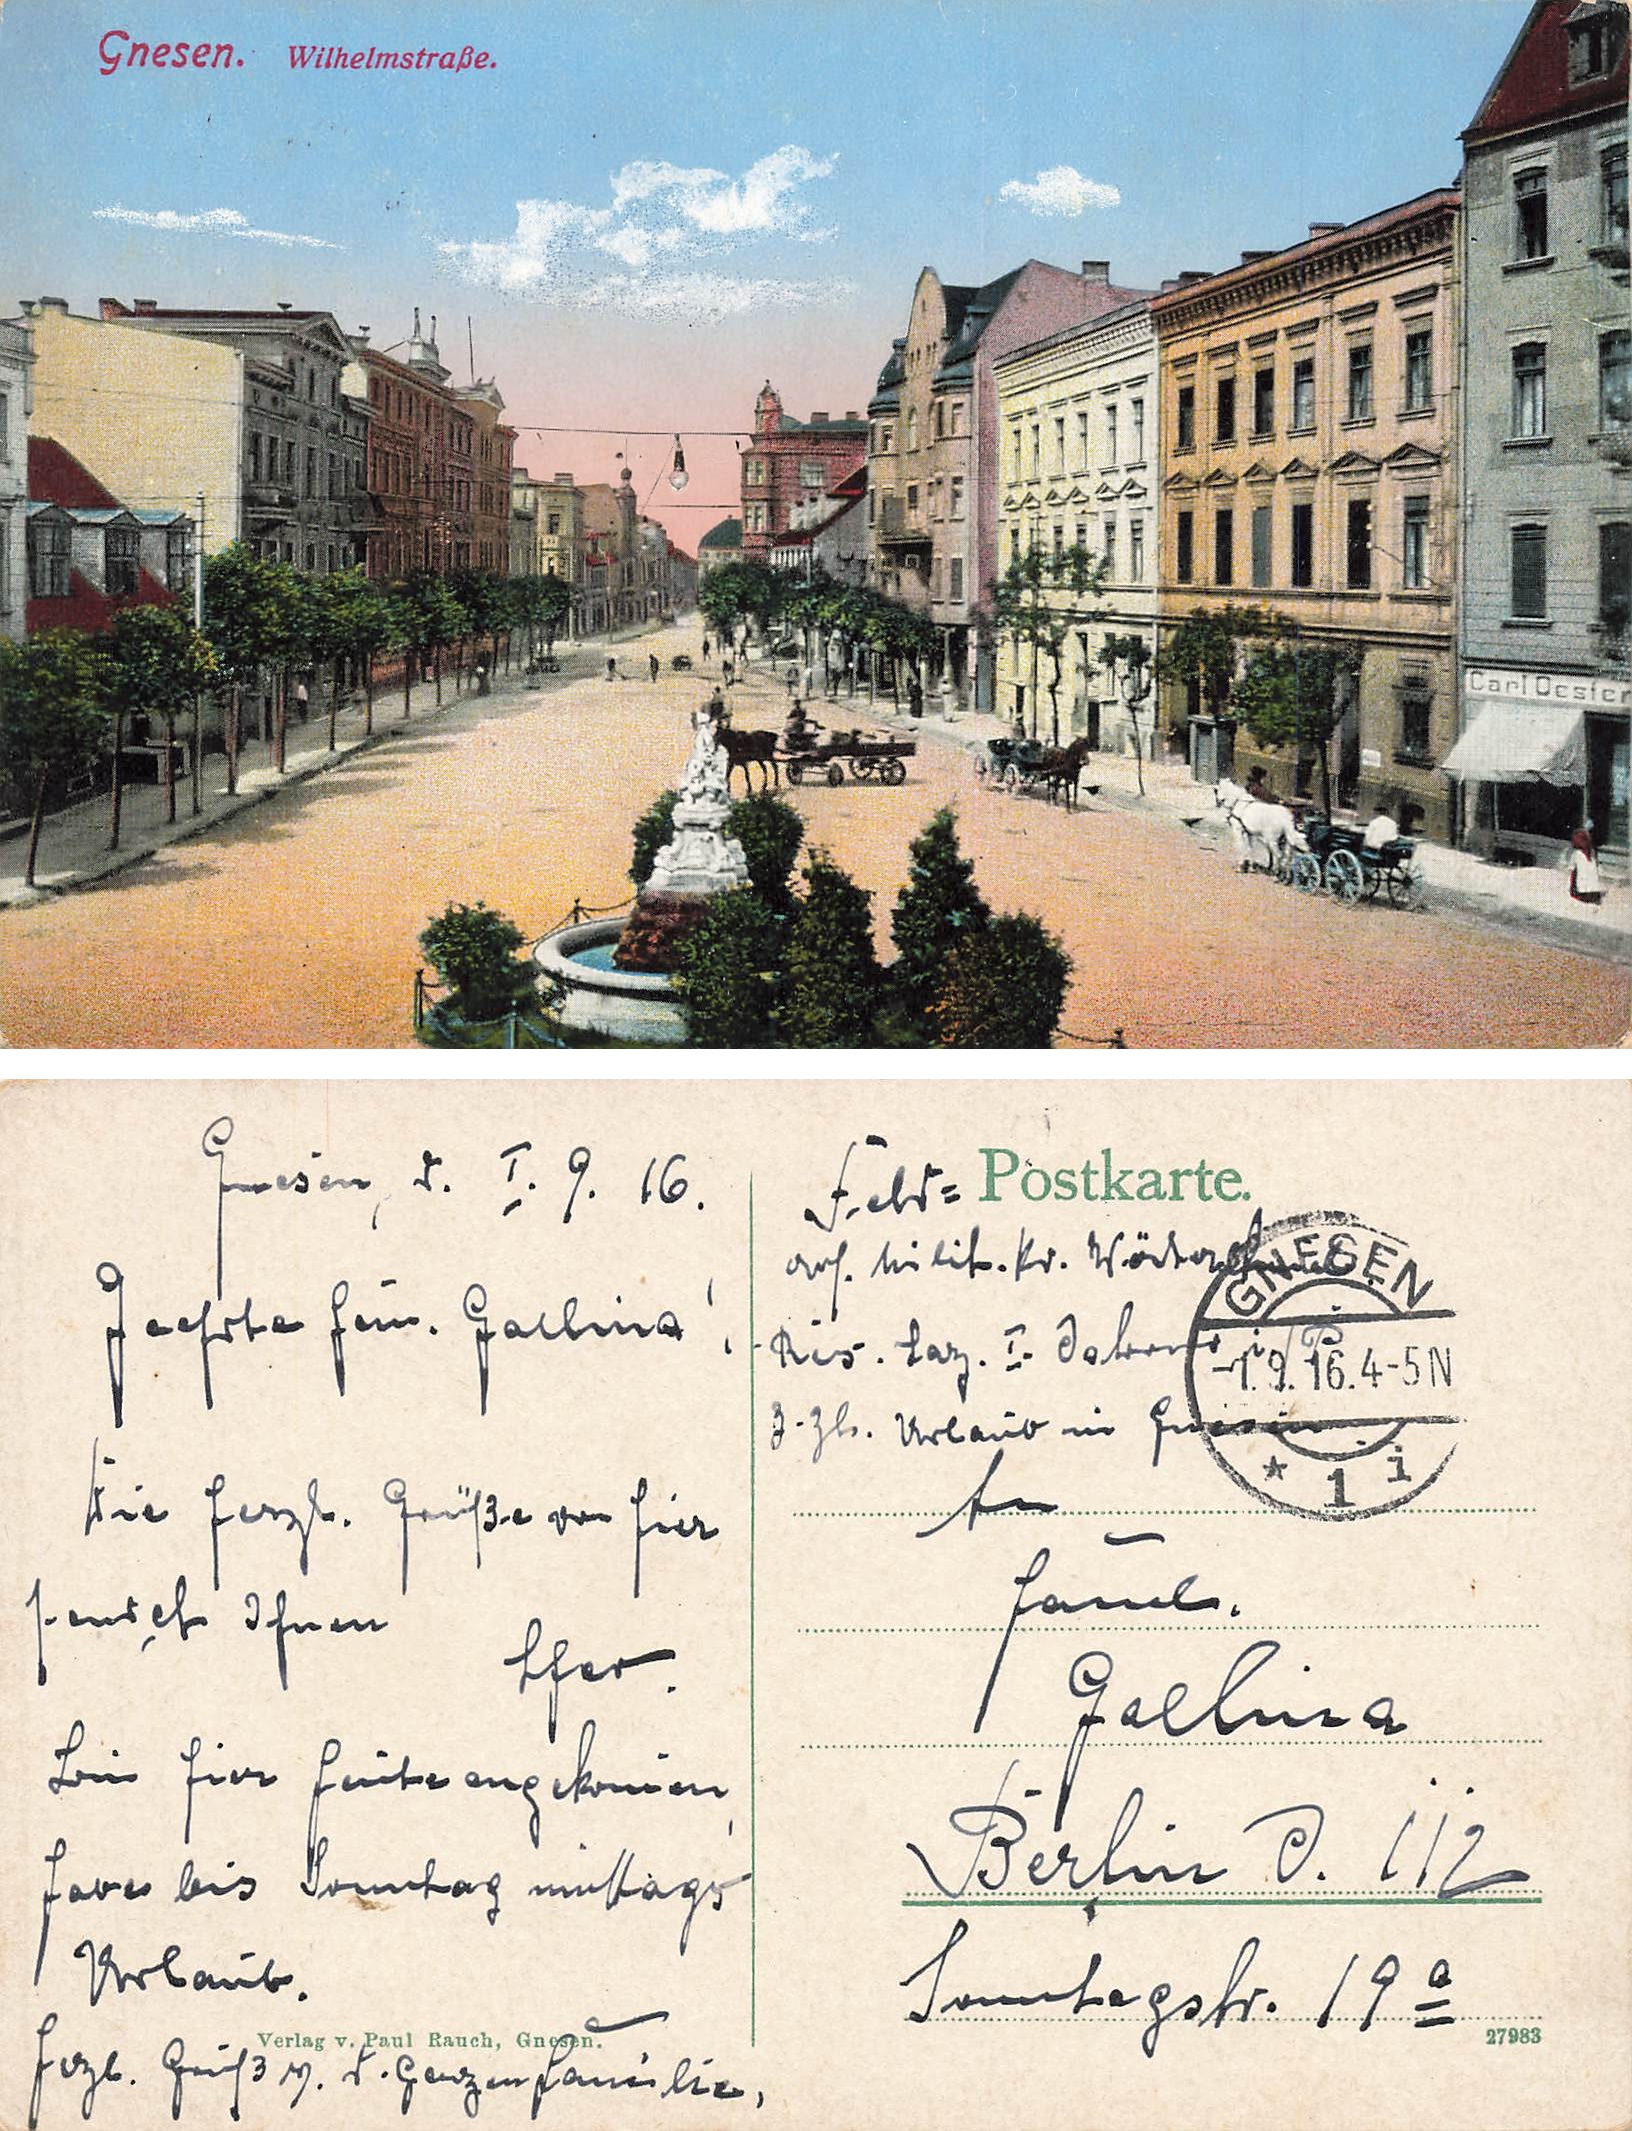 Gnesen. Wilhelmstraße.
Carl Oester
Gnesen, d. I. 9. 16.
Geehrte Fam. Gallina!
Die herzl. Grüße von hier
sendet Ihnen
Lin hier heute angekommen,
habe bis Sonntag mittags
Urlaub.
Herzl. Gruß v. d. ganzen Familie,
Verlag v. Paul Rauch, Gnesen.
Feld= Postkarte.
Abs. Milit. Kr.
Res. Laz. I.
z. Zt. Urlaub in Gnesen
GNESEN
-1.9.16.4-5N
* 1 i
An
Famil.
Gallina
Berlin O. 112
Sonntagstr. 19a
27983